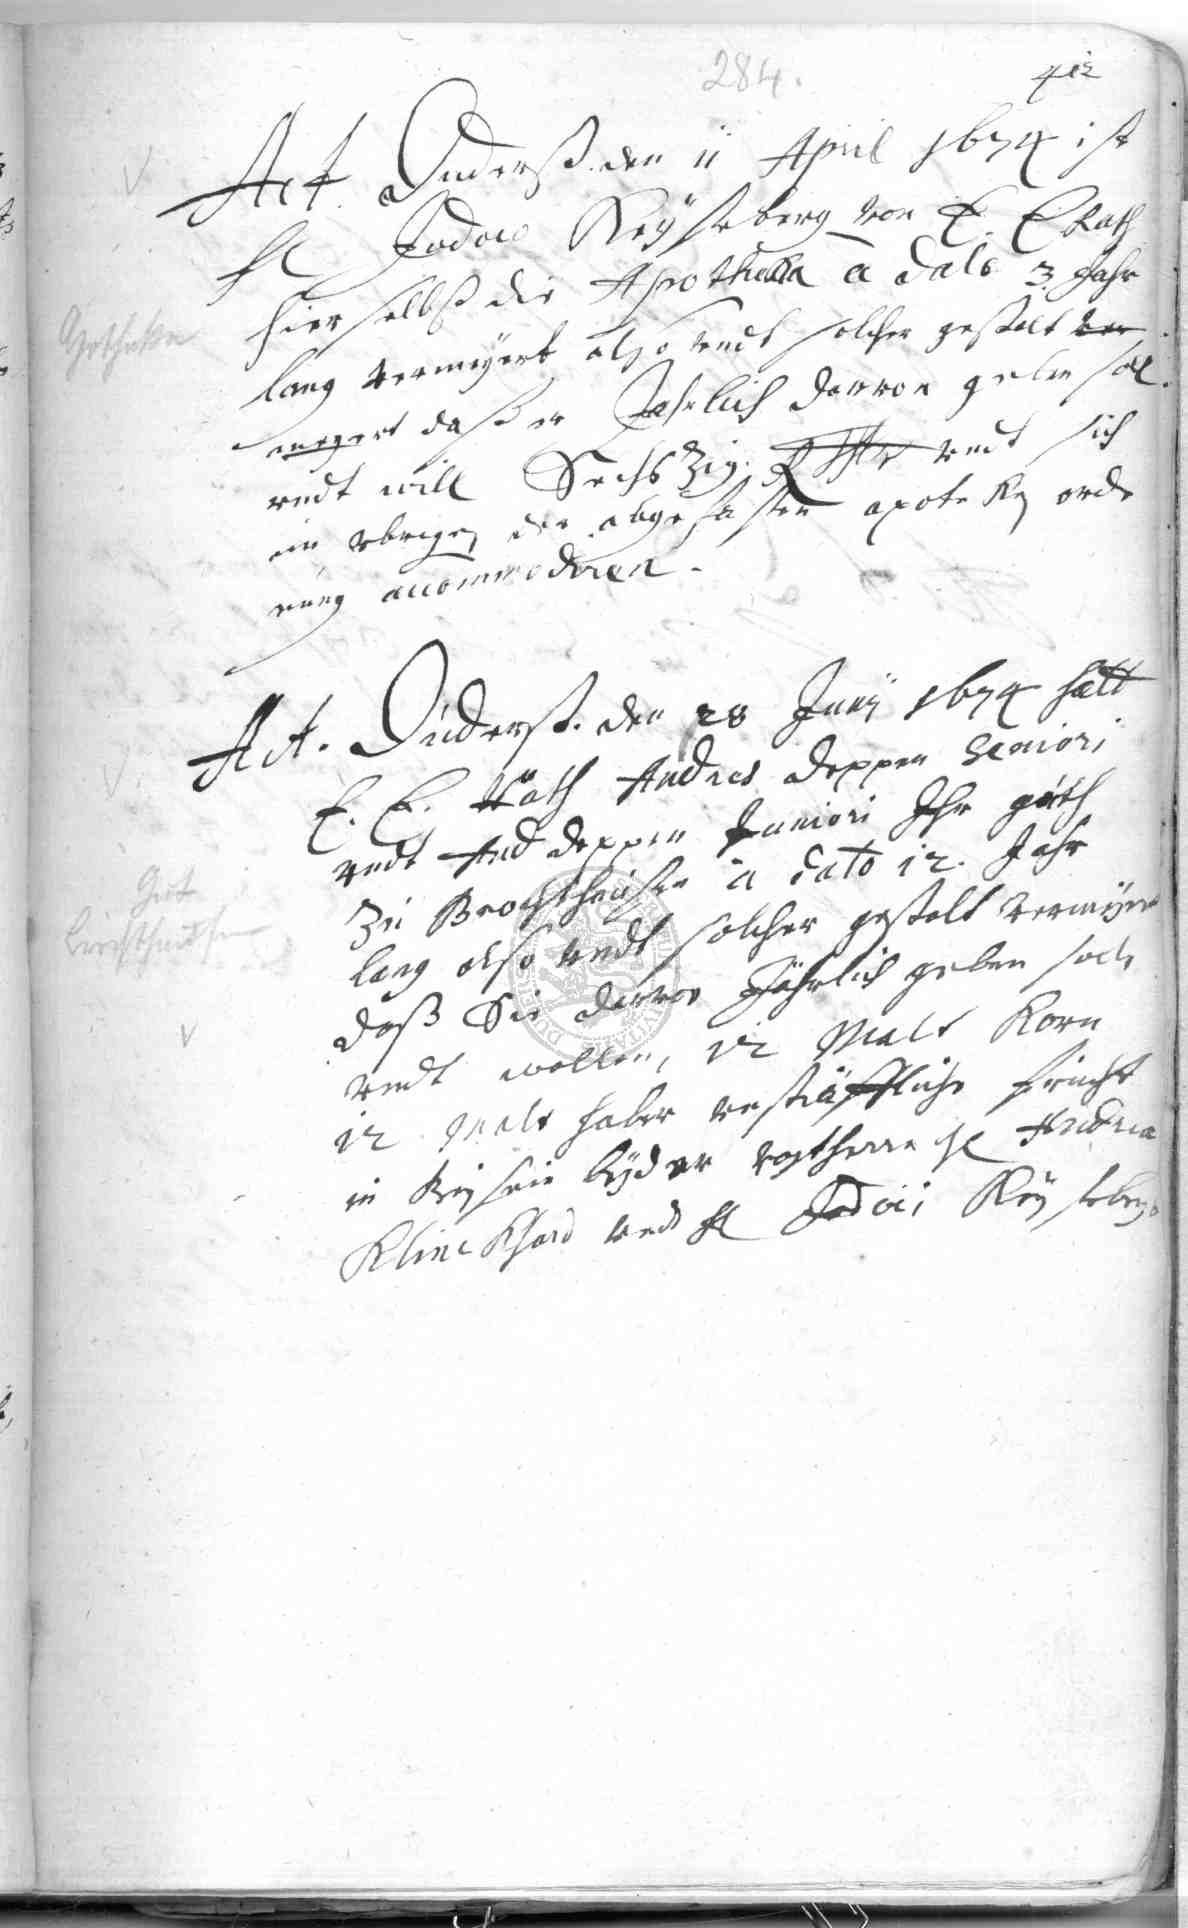 284.
412
Act Duderst. den 11 April 1674 ist
H Jodoco Keyseberg von E. E Rath
hierselbst die Apothecka a dato 3. Jahr
lang vermeyert also undt solcher gestalt ver
meyert daß er Jahrlich darvon geben soll
undt will Sechszig Rthlr undt sich
im vbrigen der abgefasten apoteken ordn
nung accommodiren.
Apotheke
Act. Duderst. den 28 Junij 1674 hatt
E. E. Rath Andres deppen Seniori
undt And deppen Juniori Ihr guth
zu Brochthausen a dato 12. Jahr
lang also undt solcher gestalt vermeyert
daß Sie darvon Jährlich geben solle
undt wollen, 12 Malt Korn
12 Malt haber unsträffliche frucht
in beysein beyder
H Andrea
Klinckhard undt H Jodoci Keyseberg
Gut